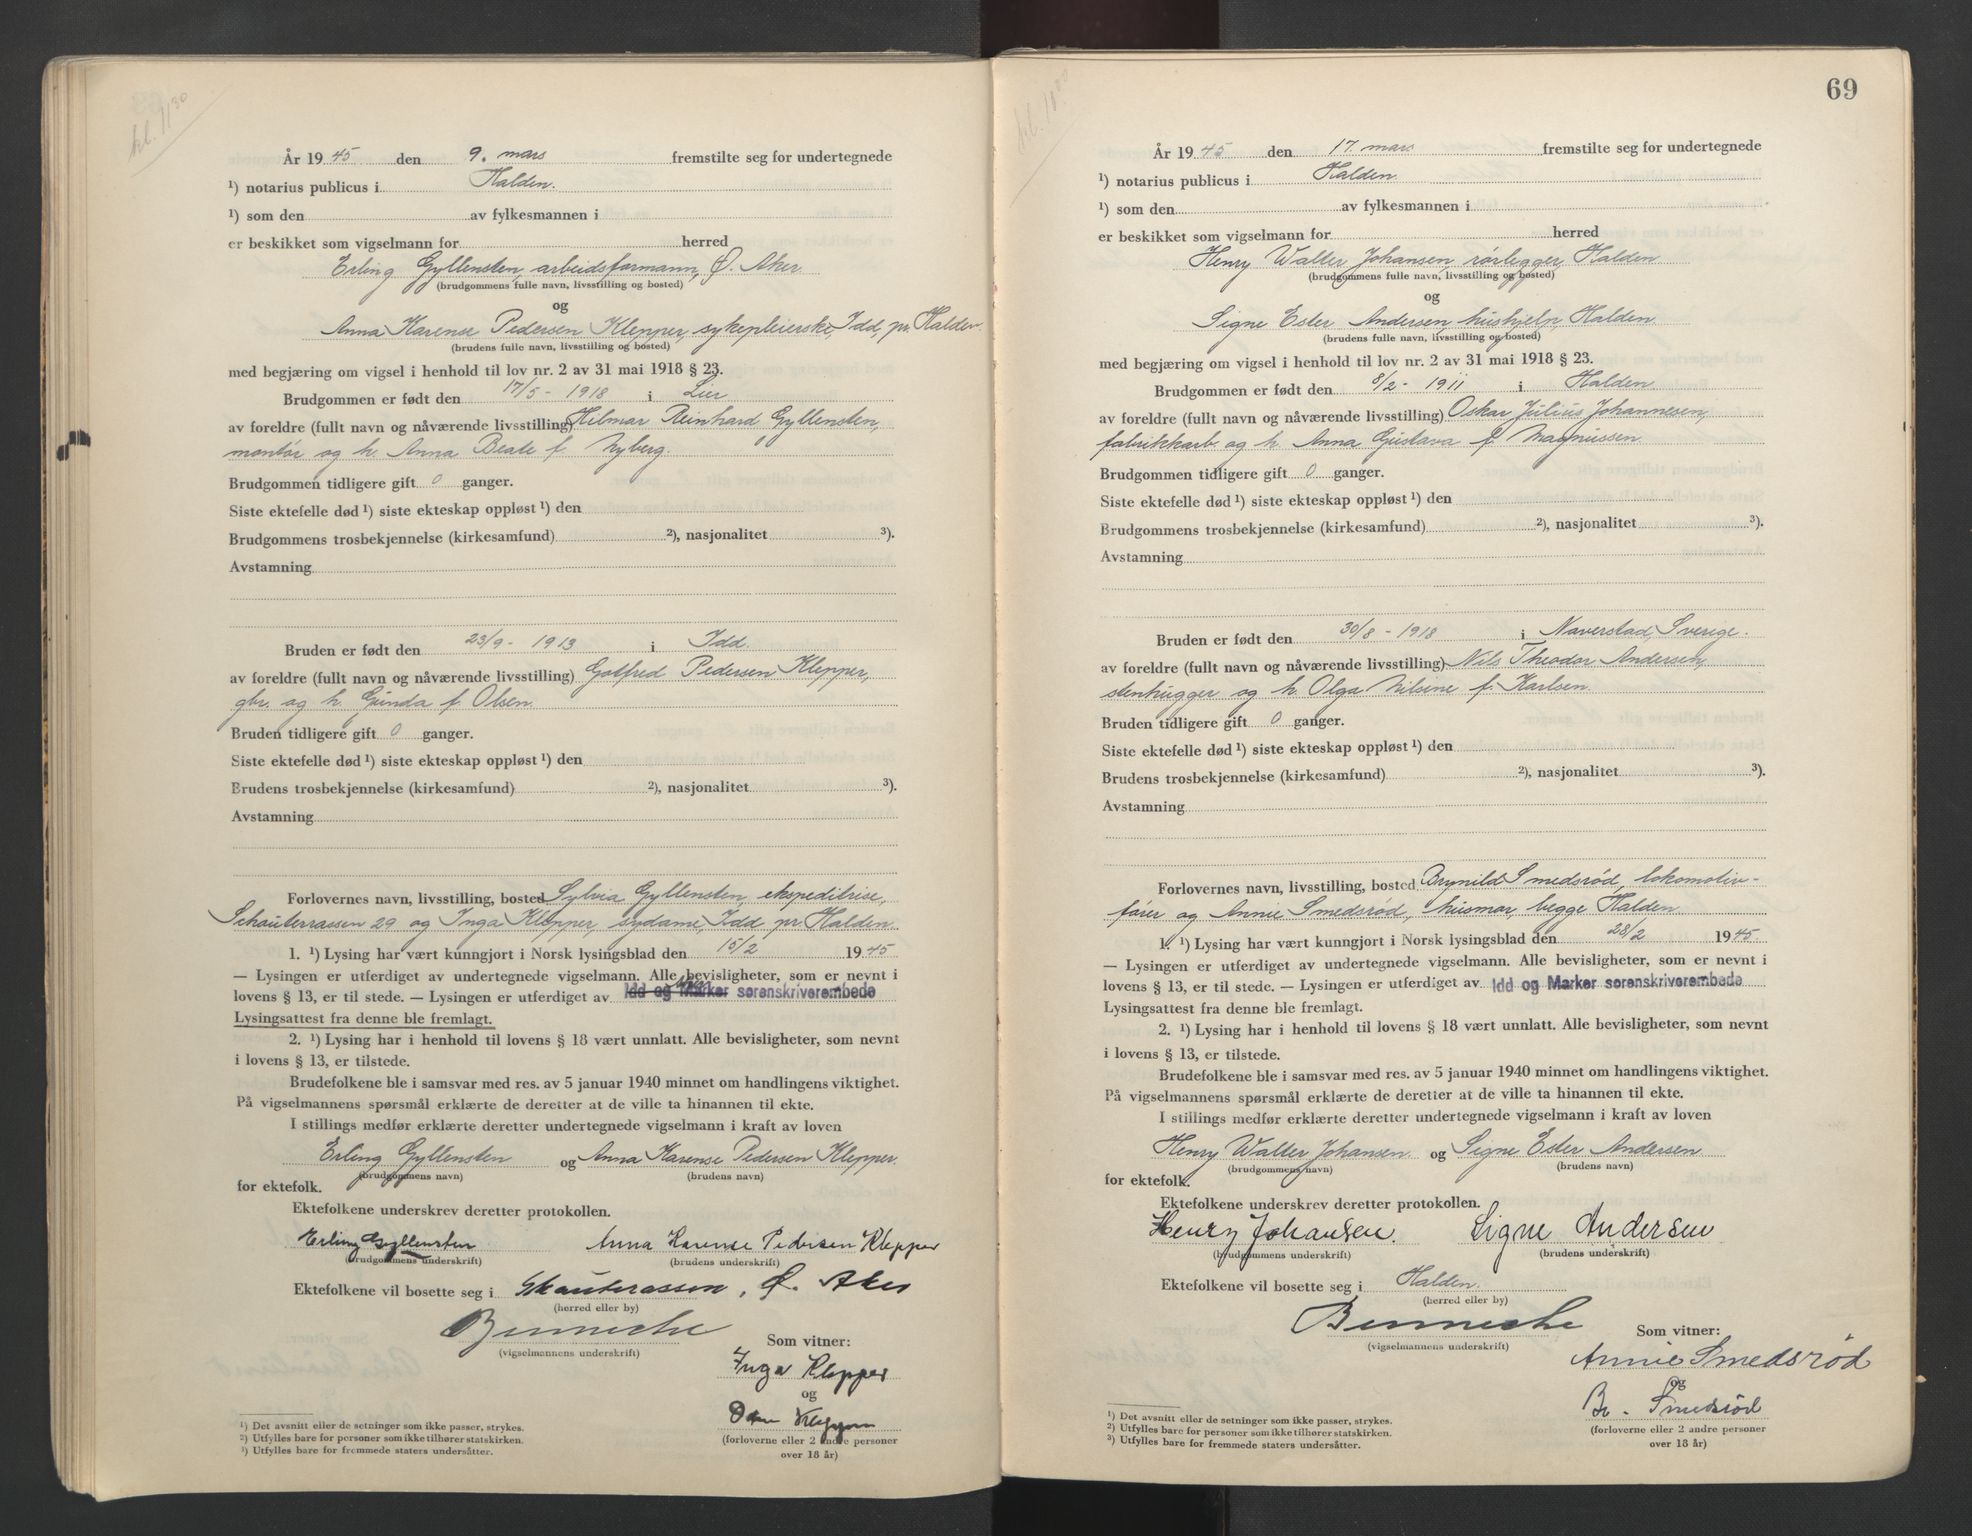 kl. 11³⁰
År 1945 den 9. mars fremstilte seg for undertegnede
¹) notarius publicus i Halden.
¹) som den av fylkesmannen i
er beskikket som vigselmann for herred
Erling Gyllensten, arbeidsformann, Ø. Aker
(brudgommens fulle navn, livsstilling og bosted)
og
Anna Karense Pedersen Klepper, sykepleierske, Idd, pr. Halden.
(brudens fulle navn, livsstilling og bosted)
med begjæring om vigsel i henhold til lov nr. 2 av 31 mai 1918 § 23.
Brudgommen er født den 17/5 - 1918 i Lier
av foreldre (fullt navn og nåværende livsstilling) Hilmar Reinhard Gyllensten,
montør og h. Anna Beate f. Nyberg.
Brudgommen tidligere gift 0 ganger.
Siste ektefelle død ¹) siste ekteskap oppløst ¹) den
Brudgommens trosbekjennelse (kirkesamfund) ²), nasjonalitet ³).
Avstamning
Bruden er født den 23/9 - 1913 i Idd.
av foreldre (fullt navn og nåværende livsstilling) Gotfred Pedersen Klepper,
gbr. og h. Gunda f. Olsen.
Bruden tidligere gift 0 ganger.
Siste ektefelle død ¹) siste ekteskap oppløst ¹) den
Brudens trosbekjennelse (kirkesamfund) ²), nasjonalitet ³).
Avstamning
Forlovernes navn, livsstilling, bosted Sylvia Gyllensten, ekspeditrise,
Schauterrassen 29 og Inga Klepper, sydame, Idd pr. Halden.
1. ¹) Lysing har vært kunngjort i Norsk lysingsblad den 15/2 1945
— Lysingen er utferdiget av undertegnede vigselmann. Alle bevisligheter, som er nevnt i
lovens § 13, er til stede. — Lysingen er utferdiget av Idd og Marker sorenskriverembede
Lysingsattest fra denne ble fremlagt.
2. ¹) Lysing har i henhold til lovens § 18 vært unnlatt. Alle bevisligheter, som nevnt
i lovens § 13, er tilstede.
Brudefolkene ble i samsvar med res. av 5 januar 1940 minnet om handlingens viktighet.
På vigselmannens spørsmål erklærte de deretter at de ville ta hinannen til ekte.
I stillings medfør erklærte deretter undertegnede vigselmann i kraft av loven
Erling Gyllensten og Anna Karense Pedersen Klepper.
(brudgommens navn) (brudens navn)
for ektefolk.
Ektefolkene underskrev deretter protokollen.
Erling Gyllensten Anna Karense Pedersen Klepper
(brudgommens underskrift) (brudens underskrift)
Ektefolkene vil bosette seg i Skauterassen, Ø. Aker
(herred eller by)
Benneche
(vigselmannens underskrift)
Som vitner:
Inga Klepper
og
Klepper
(forloverne eller 2 andre personer
over 18 år)
¹) Det avsnitt eller de setninger som ikke passer, strykes.
²) Utfylles bare for personer som ikke tilhører statskirken.
³) Utfylles bare for fremmede staters undersåtter.
69
kl. 10⁰⁰
År 1945 den 17. mars fremstilte seg for undertegnede
¹) notarius publicus i Halden.
¹) som den av fylkesmannen i
er beskikket som vigselmann for herred
Henry Walter Johansen, rørlegger, Halden
(brudgommens fulle navn, livsstilling og bosted)
og
Signe Ester Andersen, hushjelp, Halden.
(brudens fulle navn, livsstilling og bosted)
med begjæring om vigsel i henhold til lov nr. 2 av 31 mai 1918 § 23.
Brudgommen er født den 8/2 - 1911 i Halden
av foreldre (fullt navn og nåværende livsstilling) Oskar Julius Johannesen,
fabrikkarb. og h. Anna Gustava f. Magnussen
Brudgommen tidligere gift 0 ganger.
Siste ektefelle død ¹) siste ekteskap oppløst ¹) den
Brudgommens trosbekjennelse (kirkesamfund) ²), nasjonalitet ³).
Avstamning
Bruden er født den 30/8 - 1918 i Naverstad, Sverige.
av foreldre (fullt navn og nåværende livsstilling) Nils Theodor Andersen,
stenhugger og h. Olga Nilsine f. Karlsen.
Bruden tidligere gift 0 ganger.
Siste ektefelle død ¹) siste ekteskap oppløst ¹) den
Brudens trosbekjennelse (kirkesamfund) ²), nasjonalitet ³).
Avstamning
Forlovernes navn, livsstilling, bosted Brynild Smedsrød, lokomotiv-
fører og Annie Smedsrød, husmor, begge Halden
1. ¹) Lysing har vært kunngjort i Norsk lysingsblad den 28/2 1945.
— Lysingen er utferdiget av undertegnede vigselmann. Alle bevisligheter, som er nevnt i
lovens § 13, er til stede. — Lysingen er utferdiget av Idd og Marker sorenskriverembede
Lysingsattest fra denne ble fremlagt.
2. ¹) Lysing har i henhold til lovens § 18 vært unnlatt. Alle bevisligheter, som nevnt
i lovens § 13, er tilstede.
Brudefolkene ble i samsvar med res. av 5 januar 1940 minnet om handlingens viktighet.
På vigselmannens spørsmål erklærte de deretter at de ville ta hinannen til ekte.
I stillings medfør erklærte deretter undertegnede vigselmann i kraft av loven
Henry Walter Johansen og Signe Ester Andersen
(brudgommens navn) (brudens navn)
for ektefolk.
Ektefolkene underskrev deretter protokollen.
Henry Johansen. Signe Andersen
(brudgommens underskrift) (brudens underskrift)
Ektefolkene vil bosette seg i Halden.
(herred eller by)
Benneche
(vigselmannens underskrift)
Som vitner:
Annie Smedsrød
og
Br. Smedsrød
(forloverne eller 2 andre personer
over 18 år)
¹) Det avsnitt eller de setninger som ikke passer, strykes.
²) Utfylles bare for personer som ikke tilhører statskirken.
³) Utfylles bare for fremmede staters undersåtter.